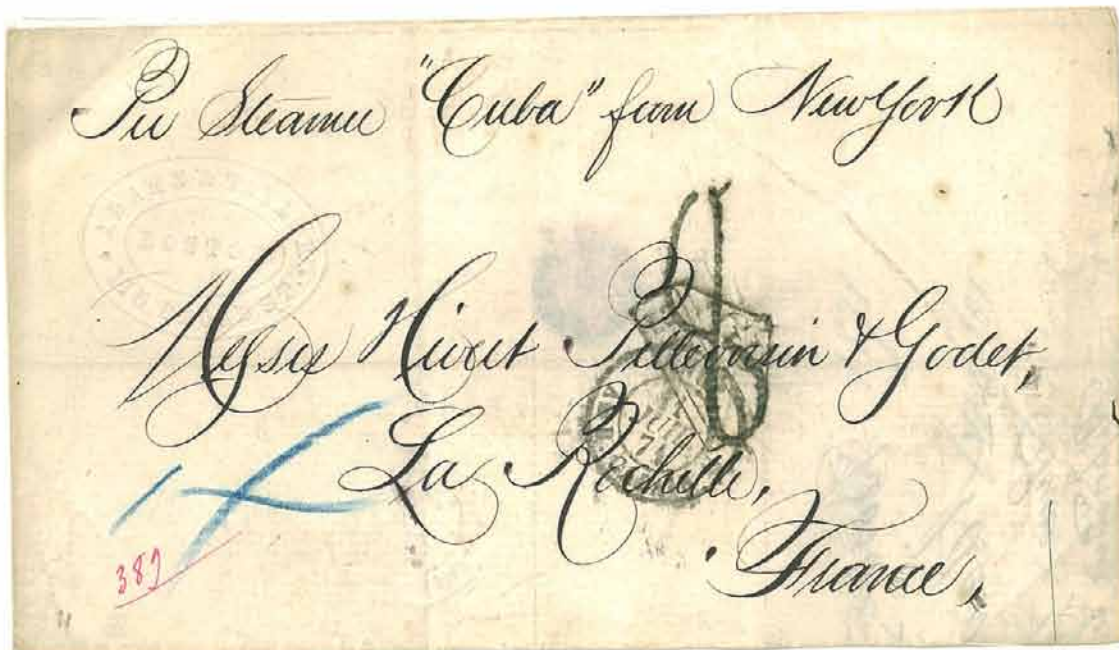 Per Steamer "Cuba" from New York
Messrs Hivert Pellevoisin & Godet,
La Rochelle,
France,
389